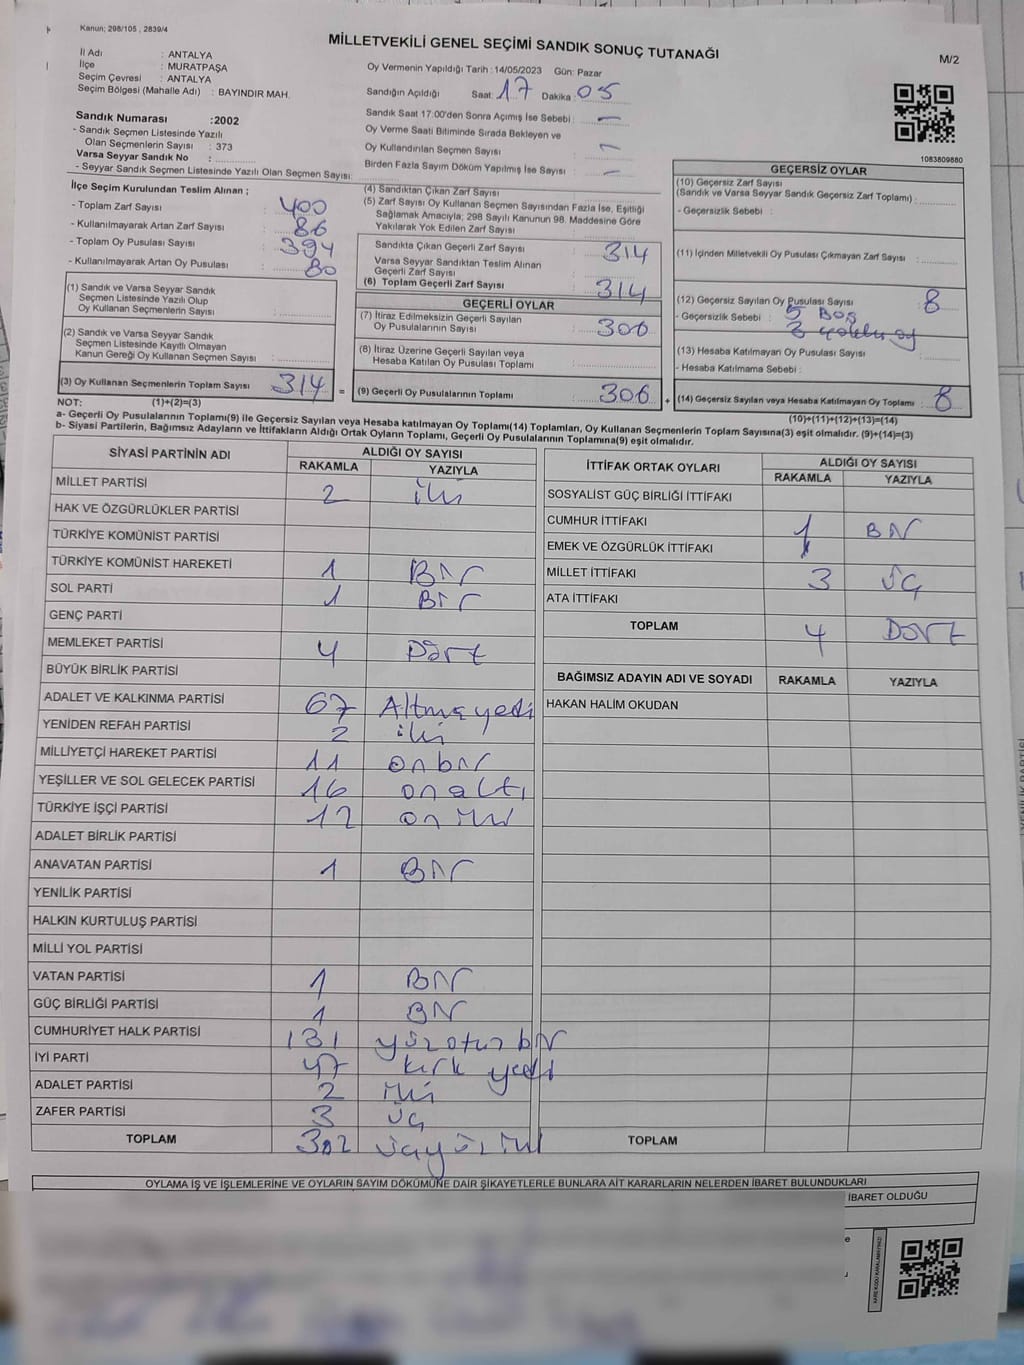 Kanun: 298/105 , 2839/4
MİLLETVEKİLİ GENEL SEÇİMİ SANDIK SONUÇ TUTANAĞI
M/2
İl Adı : ANTALYA
İlçe : MURATPAŞA
Seçim Çevresi : ANTALYA
Seçim Bölgesi (Mahalle Adı) : BAYINDIR MAH.
Oy Vermenin Yapıldığı Tarih : 14/05/2023 Gün: Pazar
Sandığın Açıldığı Saat: 17 Dakika 05
Sandık Saat 17.00'den Sonra Açımış İse Sebebi : —
Oy Verme Saati Bitiminde Sırada Bekleyen ve
Oy Kullandırılan Seçmen Sayısı : —
Birden Fazla Sayım Döküm Yapılmış İse Sayısı : —
Sandık Numarası :2002
- Sandık Seçmen Listesinde Yazılı
Olan Seçmenlerin Sayısı : 373
Varsa Seyyar Sandık No :
- Seyyar Sandık Seçmen Listesinde Yazılı Olan Seçmen Sayısı:
1083809880
İlçe Seçim Kurulundan Teslim Alınan ;
- Toplam Zarf Sayısı : 400
- Kullanılmayarak Artan Zarf Sayısı : 86
- Toplam Oy Pusulası Sayısı : 394
- Kullanılmayarak Artan Oy Pusulası : 80
(1) Sandık ve Varsa Seyyar Sandık
Seçmen Listesinde Yazılı Olup
Oy Kullanan Seçmenlerin Sayısı :
(2) Sandık ve Varsa Seyyar Sandık
Seçmen Listesinde Kayıtlı Olmayan
Kanun Gereği Oy Kullanan Seçmen Sayısı :
(3) Oy Kullanan Seçmenlerin Toplam Sayısı 314 =
(4) Sandıktan Çıkan Zarf Sayısı :
(5) Zarf Sayısı Oy Kullanan Seçmen Sayısından Fazla İse, Eşitliği
Sağlamak Amacıyla; 298 Sayılı Kanunun 98. Maddesine Göre
Yakılarak Yok Edilen Zarf Sayısı :
Sandıkta Çıkan Geçerli Zarf Sayısı : 314
Varsa Seyyar Sandıktan Teslim Alınan
Geçerli Zarf Sayısı :
(6) Toplam Geçerli Zarf Sayısı : 314
GEÇERLİ OYLAR
(7) İtiraz Edilmeksizin Geçerli Sayılan
Oy Pusulalarının Sayısı : 306
(8) İtiraz Üzerine Geçerli Sayılan veya
Hesaba Katılan Oy Pusulası Toplamı :
(9) Geçerli Oy Pusulalarının Toplamı : 306 +
GEÇERSİZ OYLAR
(10) Geçersiz Zarf Sayısı
(Sandık ve Varsa Seyyar Sandık Geçersiz Zarf Toplamı) :
- Geçersizlik Sebebi :
(11) İçinden Milletvekili Oy Pusulası Çıkmayan Zarf Sayısı :
(12) Geçersiz Sayılan Oy Pusulası Sayısı : 8
- Geçersizlik Sebebi : 5 Boş
3 oy
(13) Hesaba Katılmayan Oy Pusulası Sayısı :
- Hesaba Katılmama Sebebi :
(14) Geçersiz Sayılan veya Hesaba Katılmayan Oy Toplamı : 8
NOT: (1)+(2)=(3)
(10)+(11)+(12)+(13)=(14)
a- Geçerli Oy Pusulalarının Toplamı(9) ile Geçersiz Sayılan veya Hesaba katılmayan Oy Toplamı(14) Toplamları, Oy Kullanan Seçmenlerin Toplam Sayısına(3) eşit olmalıdır. (9)+(14)=(3)
b- Siyasi Partilerin, Bağımsız Adayların ve İttifakların Aldığı Ortak Oyların Toplamı, Geçerli Oy Pusulalarının Toplamına(9) eşit olmalıdır.
SİYASİ PARTİNİN ADI ALDIĞI OY SAYISI
RAKAMLA YAZIYLA
MİLLET PARTİSİ 2 iki
HAK VE ÖZGÜRLÜKLER PARTİSİ
TÜRKİYE KOMÜNİST PARTİSİ
TÜRKİYE KOMÜNİST HAREKETİ 1 Bir
SOL PARTİ 1 Bir
GENÇ PARTİ
MEMLEKET PARTİSİ 4 Dört
BÜYÜK BİRLİK PARTİSİ
ADALET VE KALKINMA PARTİSİ 67 Altmışyedi
YENİDEN REFAH PARTİSİ 2 iki
MİLLİYETÇİ HAREKET PARTİSİ 11 onbir
YEŞİLLER VE SOL GELECEK PARTİSİ 16 onaltı
TÜRKİYE İŞÇİ PARTİSİ 12 oniki
ADALET BİRLİK PARTİSİ
ANAVATAN PARTİSİ 1 Bir
YENİLİK PARTİSİ
HALKIN KURTULUŞ PARTİSİ
MİLLİ YOL PARTİSİ
VATAN PARTİSİ 1 Bir
GÜÇ BİRLİĞİ PARTİSİ 1 Bir
CUMHURİYET HALK PARTİSİ 131 yüzotuzbir
İYİ PARTİ 47 kırk yedi
ADALET PARTİSİ 2 iki
ZAFER PARTİSİ 3 üç
TOPLAM 302 üçyüziki
İTTİFAK ORTAK OYLARI ALDIĞI OY SAYISI
RAKAMLA YAZIYLA
SOSYALİST GÜÇ BİRLİĞİ İTTİFAKI
CUMHUR İTTİFAKI 1 Bir
EMEK VE ÖZGÜRLÜK İTTİFAKI
MİLLET İTTİFAKI 3 üç
ATA İTTİFAKI
TOPLAM 4 Dört
BAĞIMSIZ ADAYIN ADI VE SOYADI RAKAMLA YAZIYLA
HAKAN HALİM OKUDAN
TOPLAM
OYLAMA İŞ VE İŞLEMLERİNE VE OYLARIN SAYIM DÖKÜMÜNE DAİR ŞİKAYETLERLE BUNLARA AİT KARARLARIN NELERDEN İBARET BULUNDUKLARI
İBARET OLDUĞU